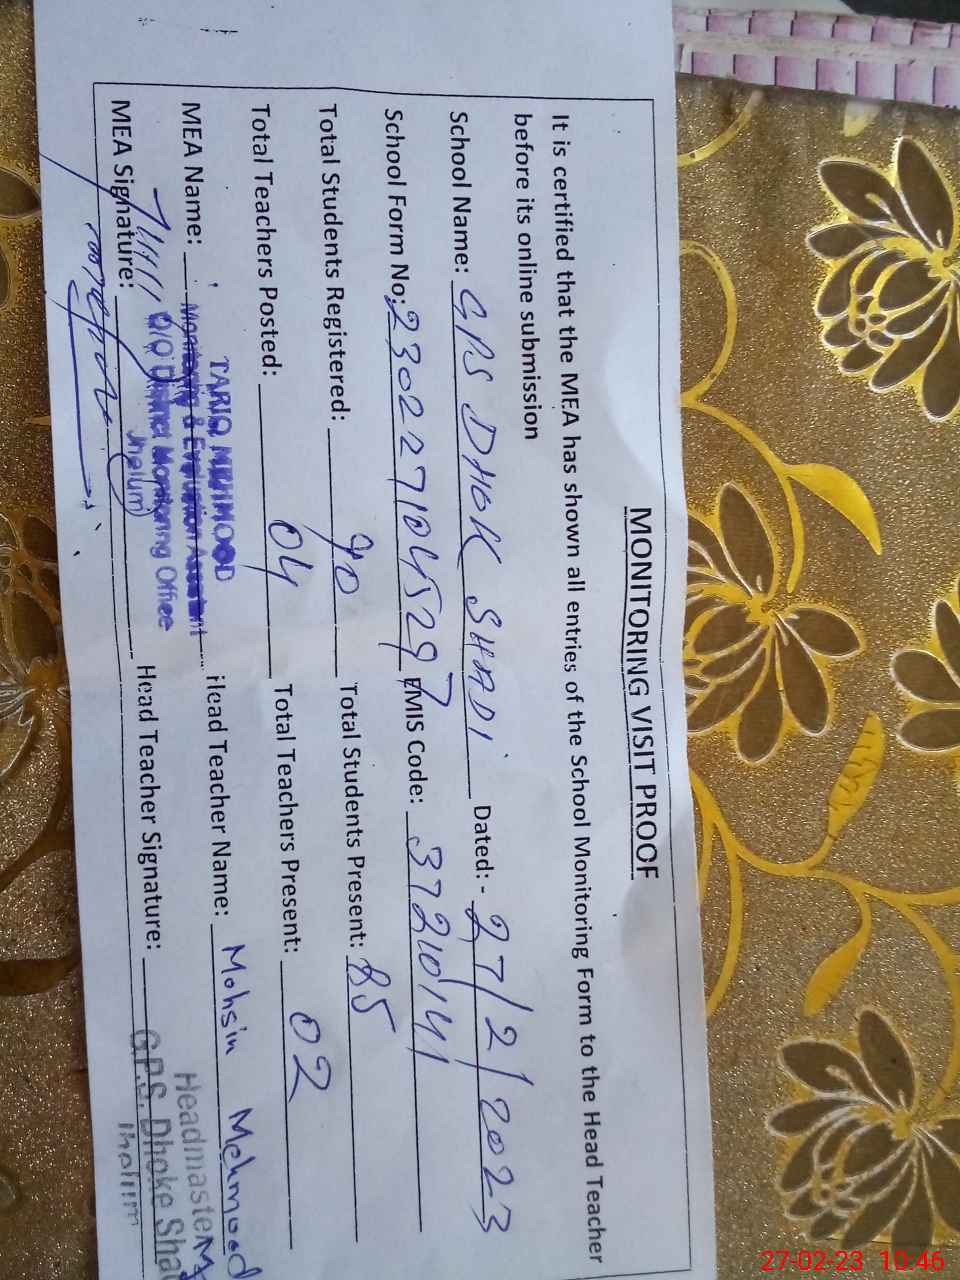 MONITORING VISIT PROOF
It is certified that the MEA has shown all entries of the School Monitoring Form to the Head Teacher
before its online submission
School Name: GPS DHOK SHADI Dated: - 27/2/2023
School Form No: 2302271045297 EMIS Code: 37210141
Total Students Registered: 90 Total Students Present: 85
Total Teachers Posted: 04 Total Teachers Present: 02
MEA Name: TARIQ MEHMOOD Head Teacher Name: Mohsin Mehmood
Monitoring & Evaluation Assistant
O/O District Monitoring Office
Jhelum
MEA Signature: Head Teacher Signature:
Headmaster
G.P.S. Dhoke Sha
Jhelum
27-02-23 10:46